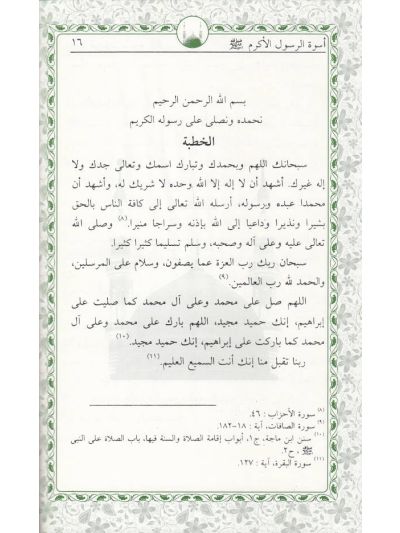 أسوة الرسول الأكرم ﷺ
١٦
بسم الله الرحمن الرحيم
نحمده ونصلى على رسوله الكريم
الخطبة
سبحانك اللهم وبحمدك وتبارك اسمك وتعالى جدك ولا
إله غيرك. أشهد أن لا إله إلا الله وحده لا شريك له، وأشهد أن
محمدا عبده ورسوله، أرسله الله تعالى إلى كافة الناس بالحق
بشيرا ونذيرا وداعيا إلى الله بإذنه وسراجا منيرا.(٨) وصلى الله
تعالى عليه وعلى آله وصحبه، وسلم تسليما كثيرا كثيرا.
سبحان ربك رب العزة عما يصفون، وسلام على المرسلين،
والحمد لله رب العالمين.(٩)
اللهم صل على محمد وعلى آل محمد كما صليت على
إبراهيم، إنك حميد مجيد، اللهم بارك على محمد وعلى آل
محمد كما باركت على إبراهيم، إنك حميد مجيد.(١٠)
ربنا تقبل منا إنك أنت السميع العليم.(١١)
(٨) سورة الأحزاب : ٤٦.
(٩) سورة الصافات، آية : ١٨٠-١٨٢.
(١٠) سنن ابن ماجة، ج١، أبواب إقامة الصلاة والسنة فيها، باب الصلاة على النبى
ﷺ، ح٢.
(١١) سورة البقرة، آية : ١٢٧.